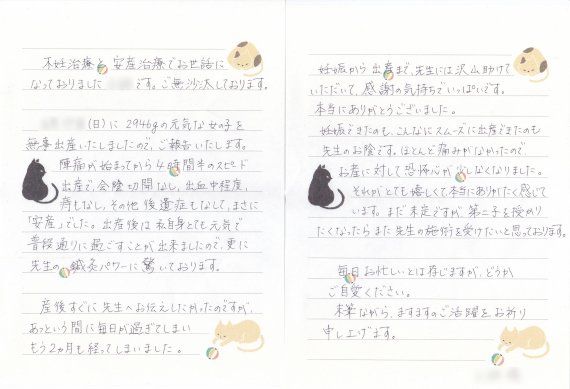 不妊治療と、安産治療でお世話に
なっておりました です。ご無沙汰しております。
(日)に2946gの元気な女の子を
無事出産いたしましたので、ご報告いたします。
陣痛が始まってから4時間半のスピード
出産で、会陰切開なし、出血中程度、
痔もなし、その他後遺症もなしで、まさに
「安産」でした。出産後は私自身とても元気で
普段通りに過ごすことが出来ましたので、更に
先生の鍼灸パワーに驚いております。
産後すぐに先生へお伝えしたかったのですが、
あっという間に毎日が過ぎてしまい
もう2ヵ月も経ってしまいました。
妊娠から出産まで、先生には沢山助けて
いただいて、感謝の気持ちでいっぱいです。
本当にありがとうございました。
妊娠できたのも、こんなにスムーズに出産できたのも
先生のお陰です。ほとんど痛みがなかったので、
お産に対して恐怖心が少しなくなりました。
それがとても嬉しくて本当にありがたく感じて
います。まだ未定ですが、第二子を授かり
たくなったらまた先生の施術を受けたいと思っております。
毎日お忙しいとは存じますが、どうか
ご自愛ください。
末筆ながら、ますますのご活躍をお祈り
申し上げます。